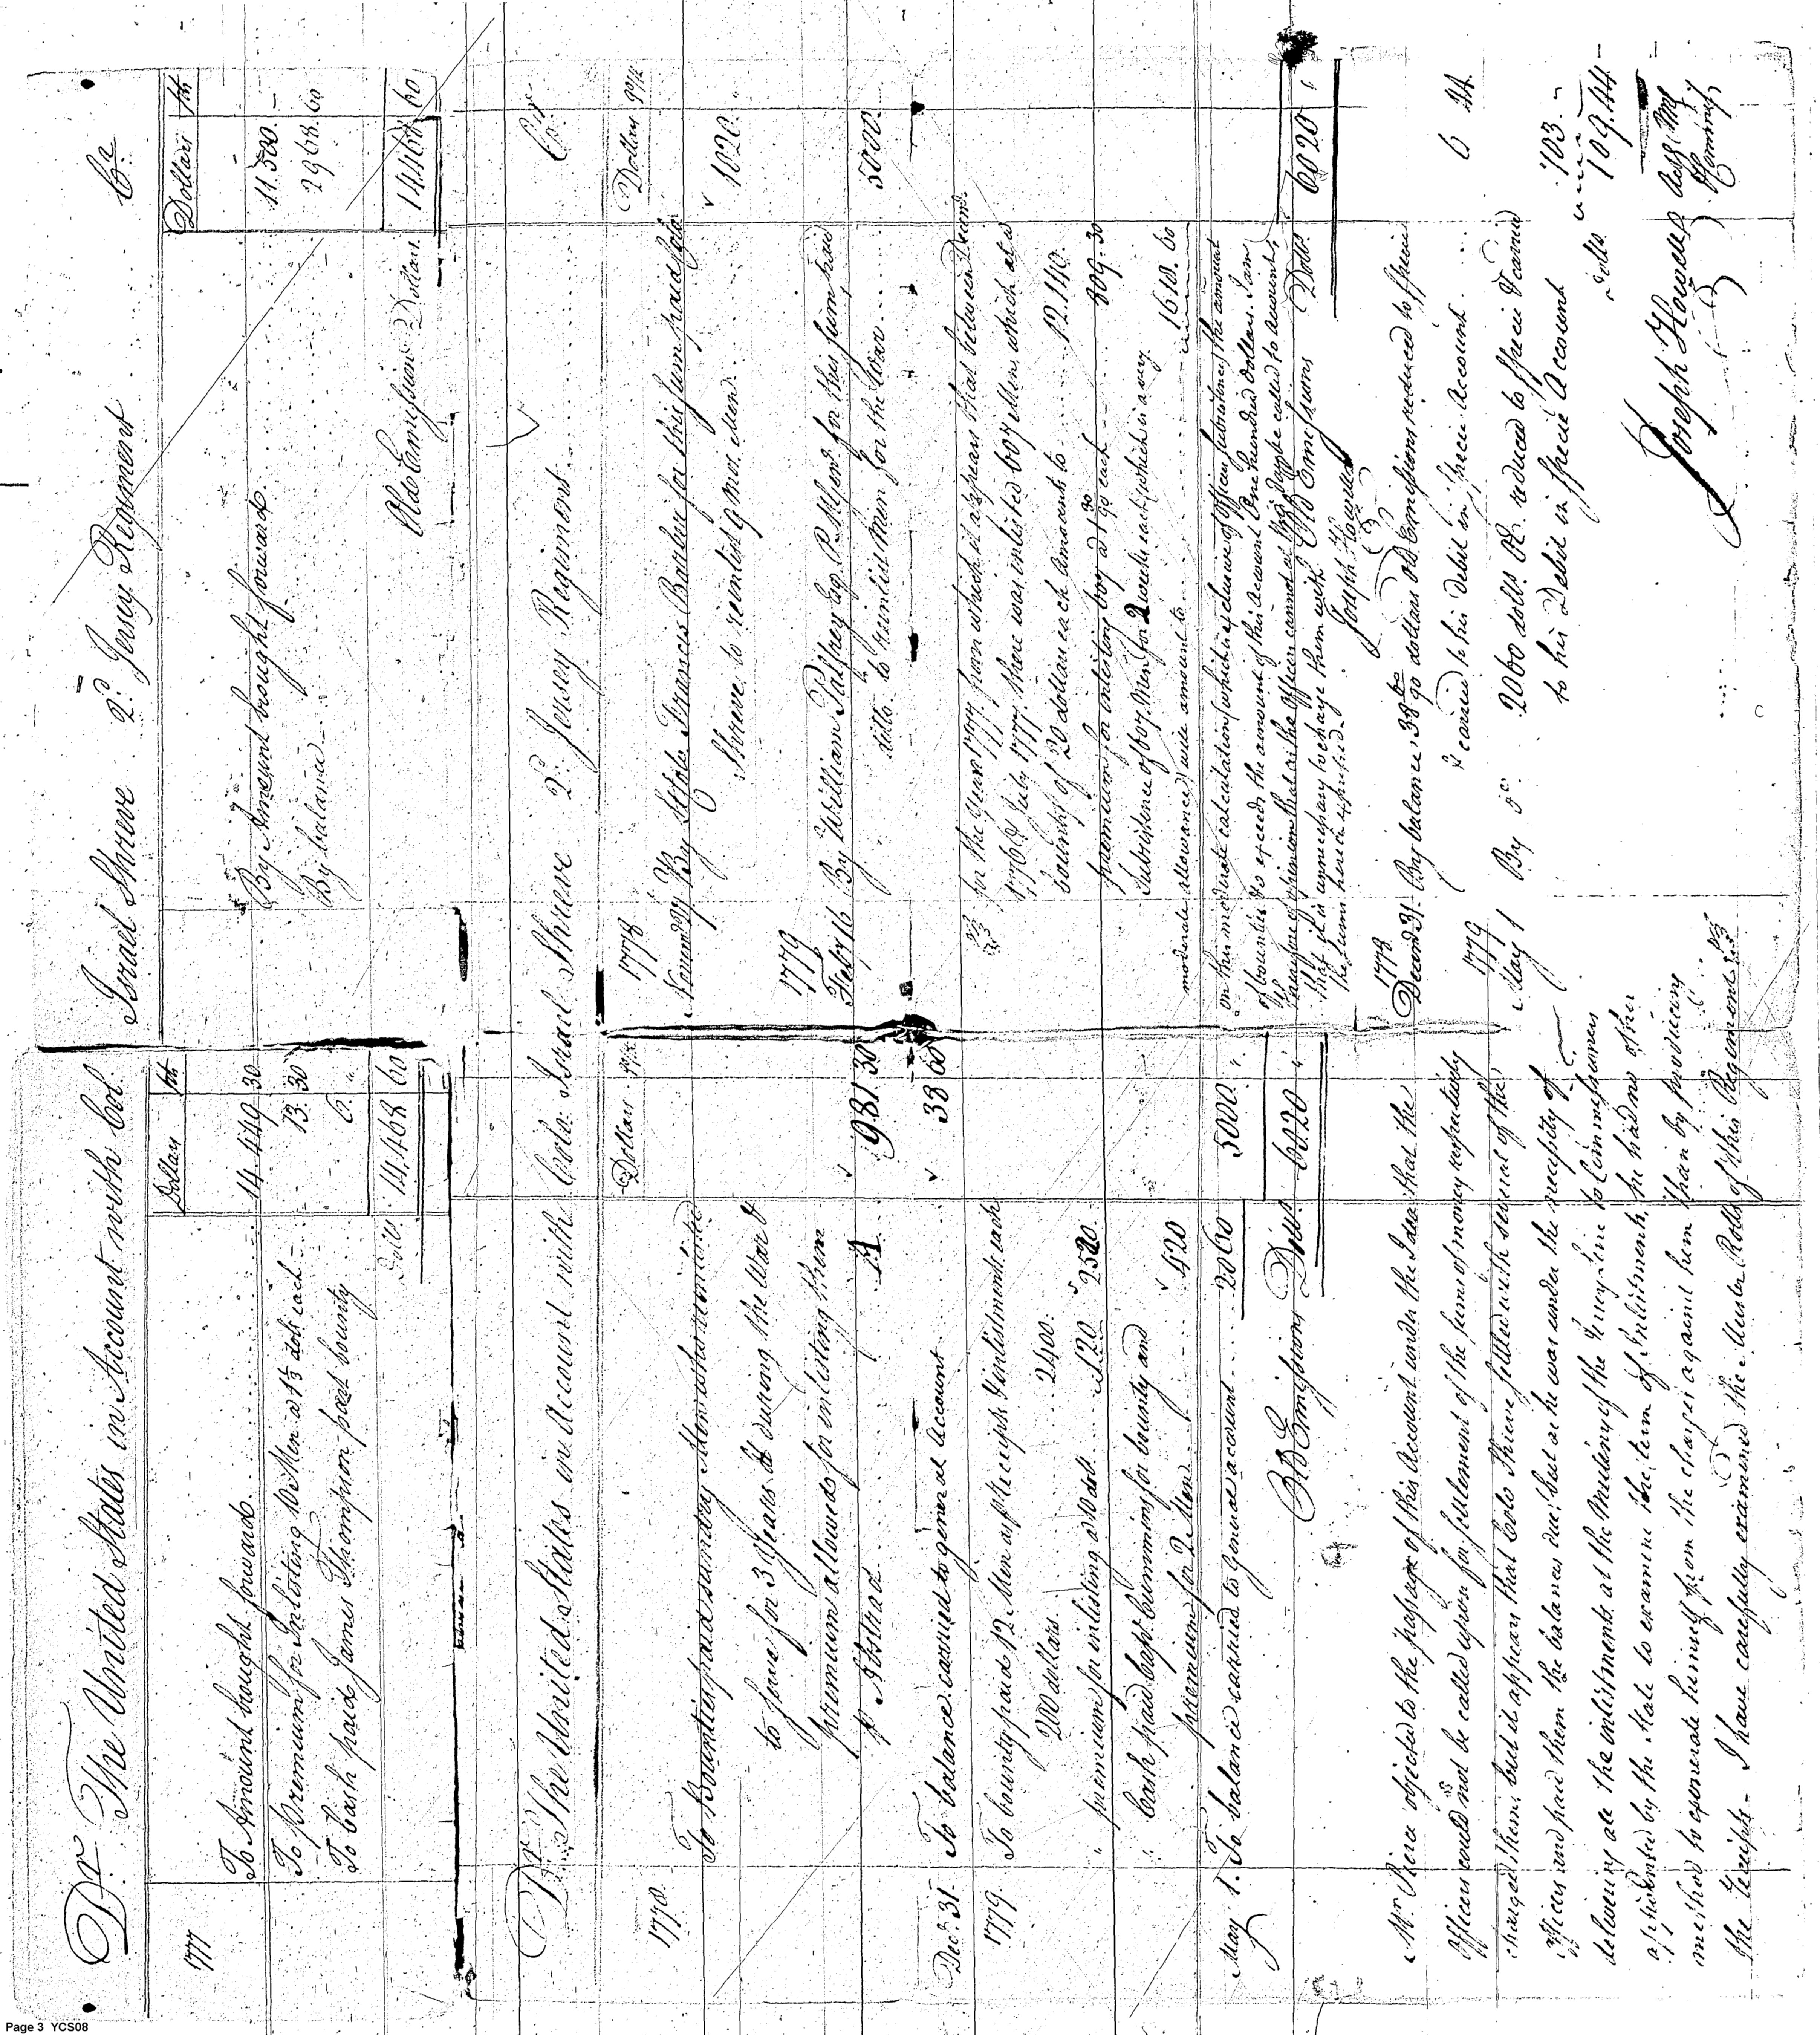 Dr. The United States in Account with Col. Israel Shreve 2d. Jersey Regiment Cr.
Dollars
1777
To Amount brought forward 14.449 30
To premium for Inlisting 10 Men at 1⅓ doll each 13. 30
To Cash paid James Thompson part bounty 6. "
Dolls. 14.468 60
Dollars
By Amount brought forward 11.500. -
By balance 2968. 60
Old Emissions Dollars 14468 60
Dr. The United States in Account with Colo. Israel Shreve 2d. Jersey Regiment Cr.
Dollars
1778.
To Bounties paid sundry Men who reinlisted
to serve for 3 Years & during the War &
premium allowed for inlisting them
p Abstract A 981. 30
Decr. 31. To balance carried to general Account 38 60
1779.
To bounty paid 12 Men as p Receipts & inlistments each
200 dollars 2400.
" premium for inlisting at 10 doll. 120 2520.
Cash paid Capt. Cummins for bounty and
premium for 2 Men 420
May 1. To balance carried to General account 2060 5000. "
Old Emissions Dolls. 6020 "
Dollars
1778
Novemr. 27 By Francis Barber for this sum paid Colo.
Shreve to reinlist 9 mos. Men 1020.
1779
Feby 16 By William Palfrey Esq. P. M. Gen. for this sum paid
ditto to reinlist Men for the War 5000.
for the Year 1777. from which it appears that between Decem.
1776 & July 1777. there was inlisted 607 Men, which at a
bounty of 20 dollars each Amounts to 12.140.
premium for inlisting 607 at 1 30/90 each 809. 30
Subsistence of 607 Men for 2 weeks each which is a very
moderate allowance will amount to 1618. 60
on this moderate calculation (which is exclusive of Officers subsistence) the amount
of bounties do exceed the amount of this Account One hundred dollars. I am
therefore of opinion that as the Officers cannot at this day be called to account,
that it is unnecessary to charge them with
the sums herein expressed.
Joseph Howell
Old Emissions Dolls. 6020 "
1778
Decem 31. By balance 38 60/90 dollars Old Emissions reduced to specie
& carried to his debit in specie Account 6 44
1779
May 1 By do. 2060 dolls. OE. reduced to specie & carried
to his Debit in specie Account 103. -
Dolls. 109.44
Joseph Howell
Mr. Pierce objected to the passage of this Account under the Idea that the
Officers could not be called upon for settlement of the sums of money respectively
charged them, but it appears that Colo. Shreve settled with several of the
Officers and paid them the balances due: but as he was under the necessity of
delivering all the inlistments at the Mutiny of the Jersey Line to Commissioners
appointed by the State to examine the term of Inlistments, he had no other
method to exonerate himself from the charges against him than by producing
the receipts - I have carefully examined the Muster Rolls of this Regiment
Page 3 YCS08